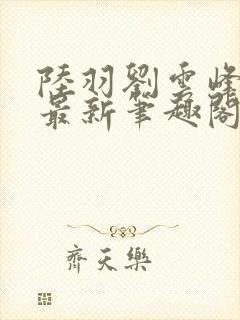 陸羽劉雲峰
最新筆趣閣
齊天樂